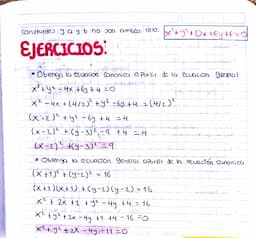 constantes y a y b no son ambas cero. x²+y²+Dx+Ey+F=0
EJERCICIOS:
• Obtenga la ecuación canonica a partir de la ecuacion general
x²+y²-4x+6y+4=0
x²-4x+(4/2)²+y²-6y+4=(4/2)²
(x-2)²+y²-6y+4=4
(x-2)²+(y-3)²-9+4=4
(x-2)²+(y-3)²=9
• Obtenga la ecuación general apartir de la ecuación canonica
(x+1)²+(y-2)²=16
(x+1)(x+1)+(y-2)(y-2)=16
x²+2x+1+y²-4y+4=16
x²+y²+2x-4y+1+4-16=0
x²+y²+2x-4y-11=0